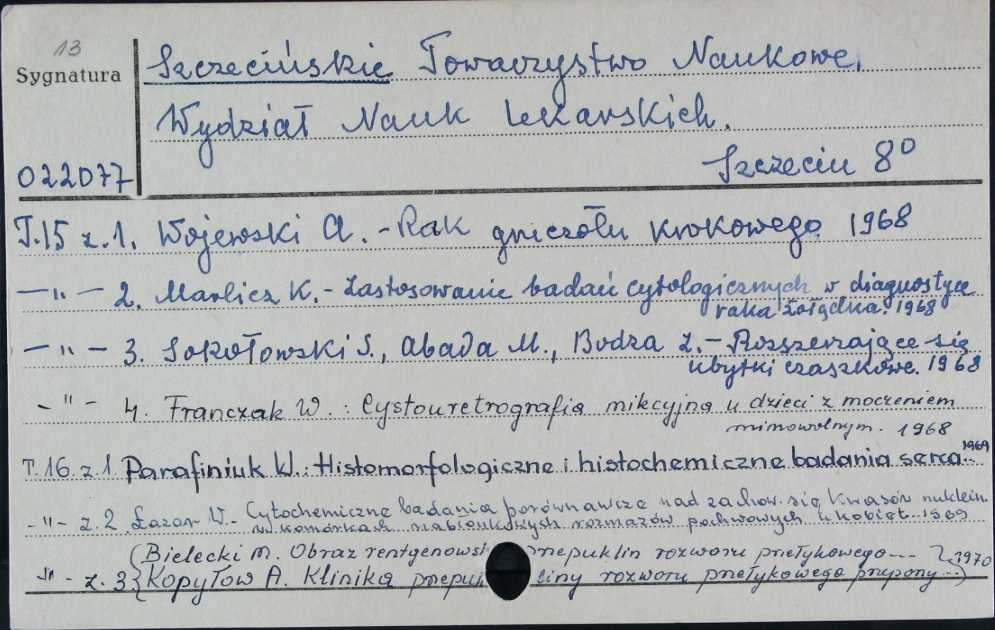 13
Sygnatura
Szczecińskie Towarzystwo Naukowe.
Wydział Nauk Lekarskich.
Szczecin 8°
022077
T.15 z.1. Wojewski A. - Rak gruczołu krokowego 1968
— " — 2. Marlicz K. - Zastosowanie badań cytologicznych w diagnostyce
raka żołądka. 1968
— " — 3. Sokołowski S., Abada M., Budza Z. - Rozszerzające się
ubytki czaszkowe. 1968
- " - 4. Franczak W. : Cystouretrografia mikcyjna u dzieci z moczeniem
mimowolnym. 1968
T. 16. z.1. Parafiniuk W.: Histomorfologiczne i histochemiczne badania serca.. 1969
- " - z.2 Łazar W. - Cytochemiczne badania porównawcze nad zachow. się kwasów nuklein.
w komórkach nabłonkowych rozmazów pochwowych u kobiet. 1969
- " - z. 3 { Bielecki M. Obraz rentgenowski przepuklin rozworu przełykowego --- } 1970
Kopyłow A. Klinika przepukliny rozworu przełykowego przepony -